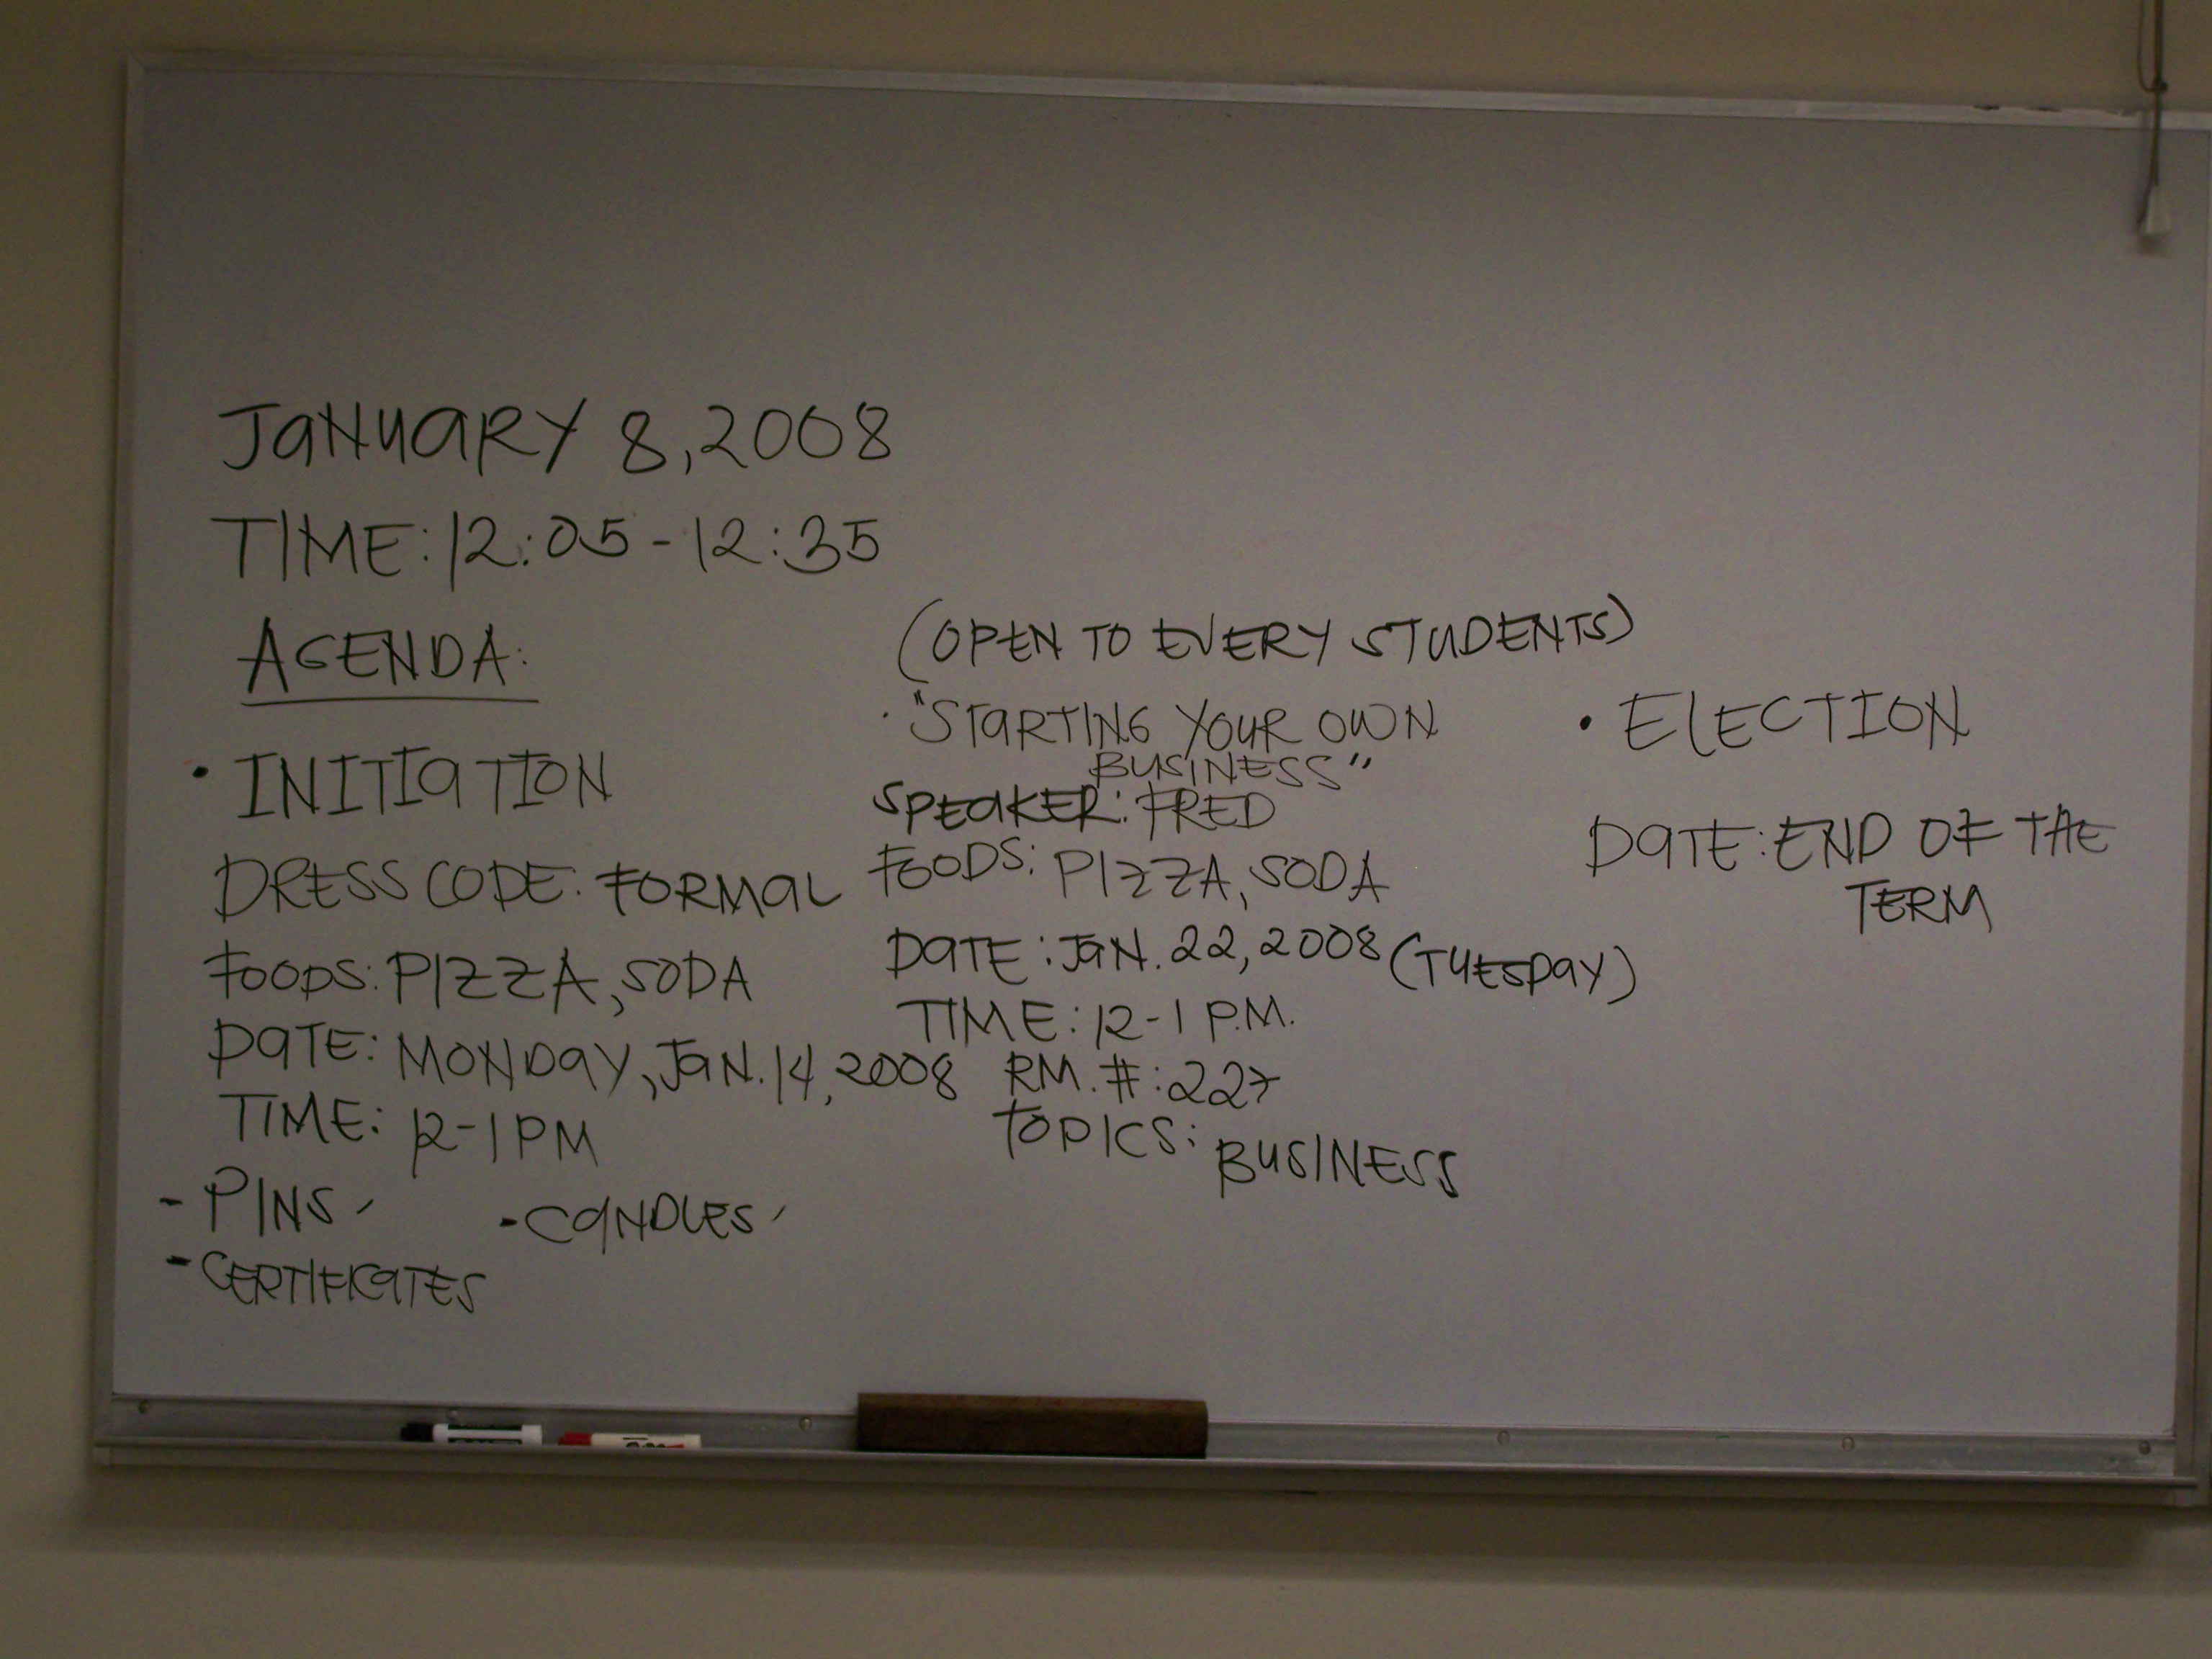 JANUARY 8, 2008
TIME: 12:05 - 12:35
AGENDA:
• INITIATION
DRESS CODE: FORMAL
FOODS: PIZZA, SODA
DATE: MONDAY, JAN. 14, 2008
TIME: 12-1 PM
- PINS
- CANDLES
- CERTIFICATES
(OPEN TO EVERY STUDENTS)
• "STARTING YOUR OWN
BUSINESS"
SPEAKER: FRED
FOODS: PIZZA, SODA
DATE: JAN. 22, 2008 (TUESDAY)
TIME: 12-1 P.M.
RM. #: 227
TOPICS: BUSINESS
• ELECTION
DATE: END OF THE
TERM